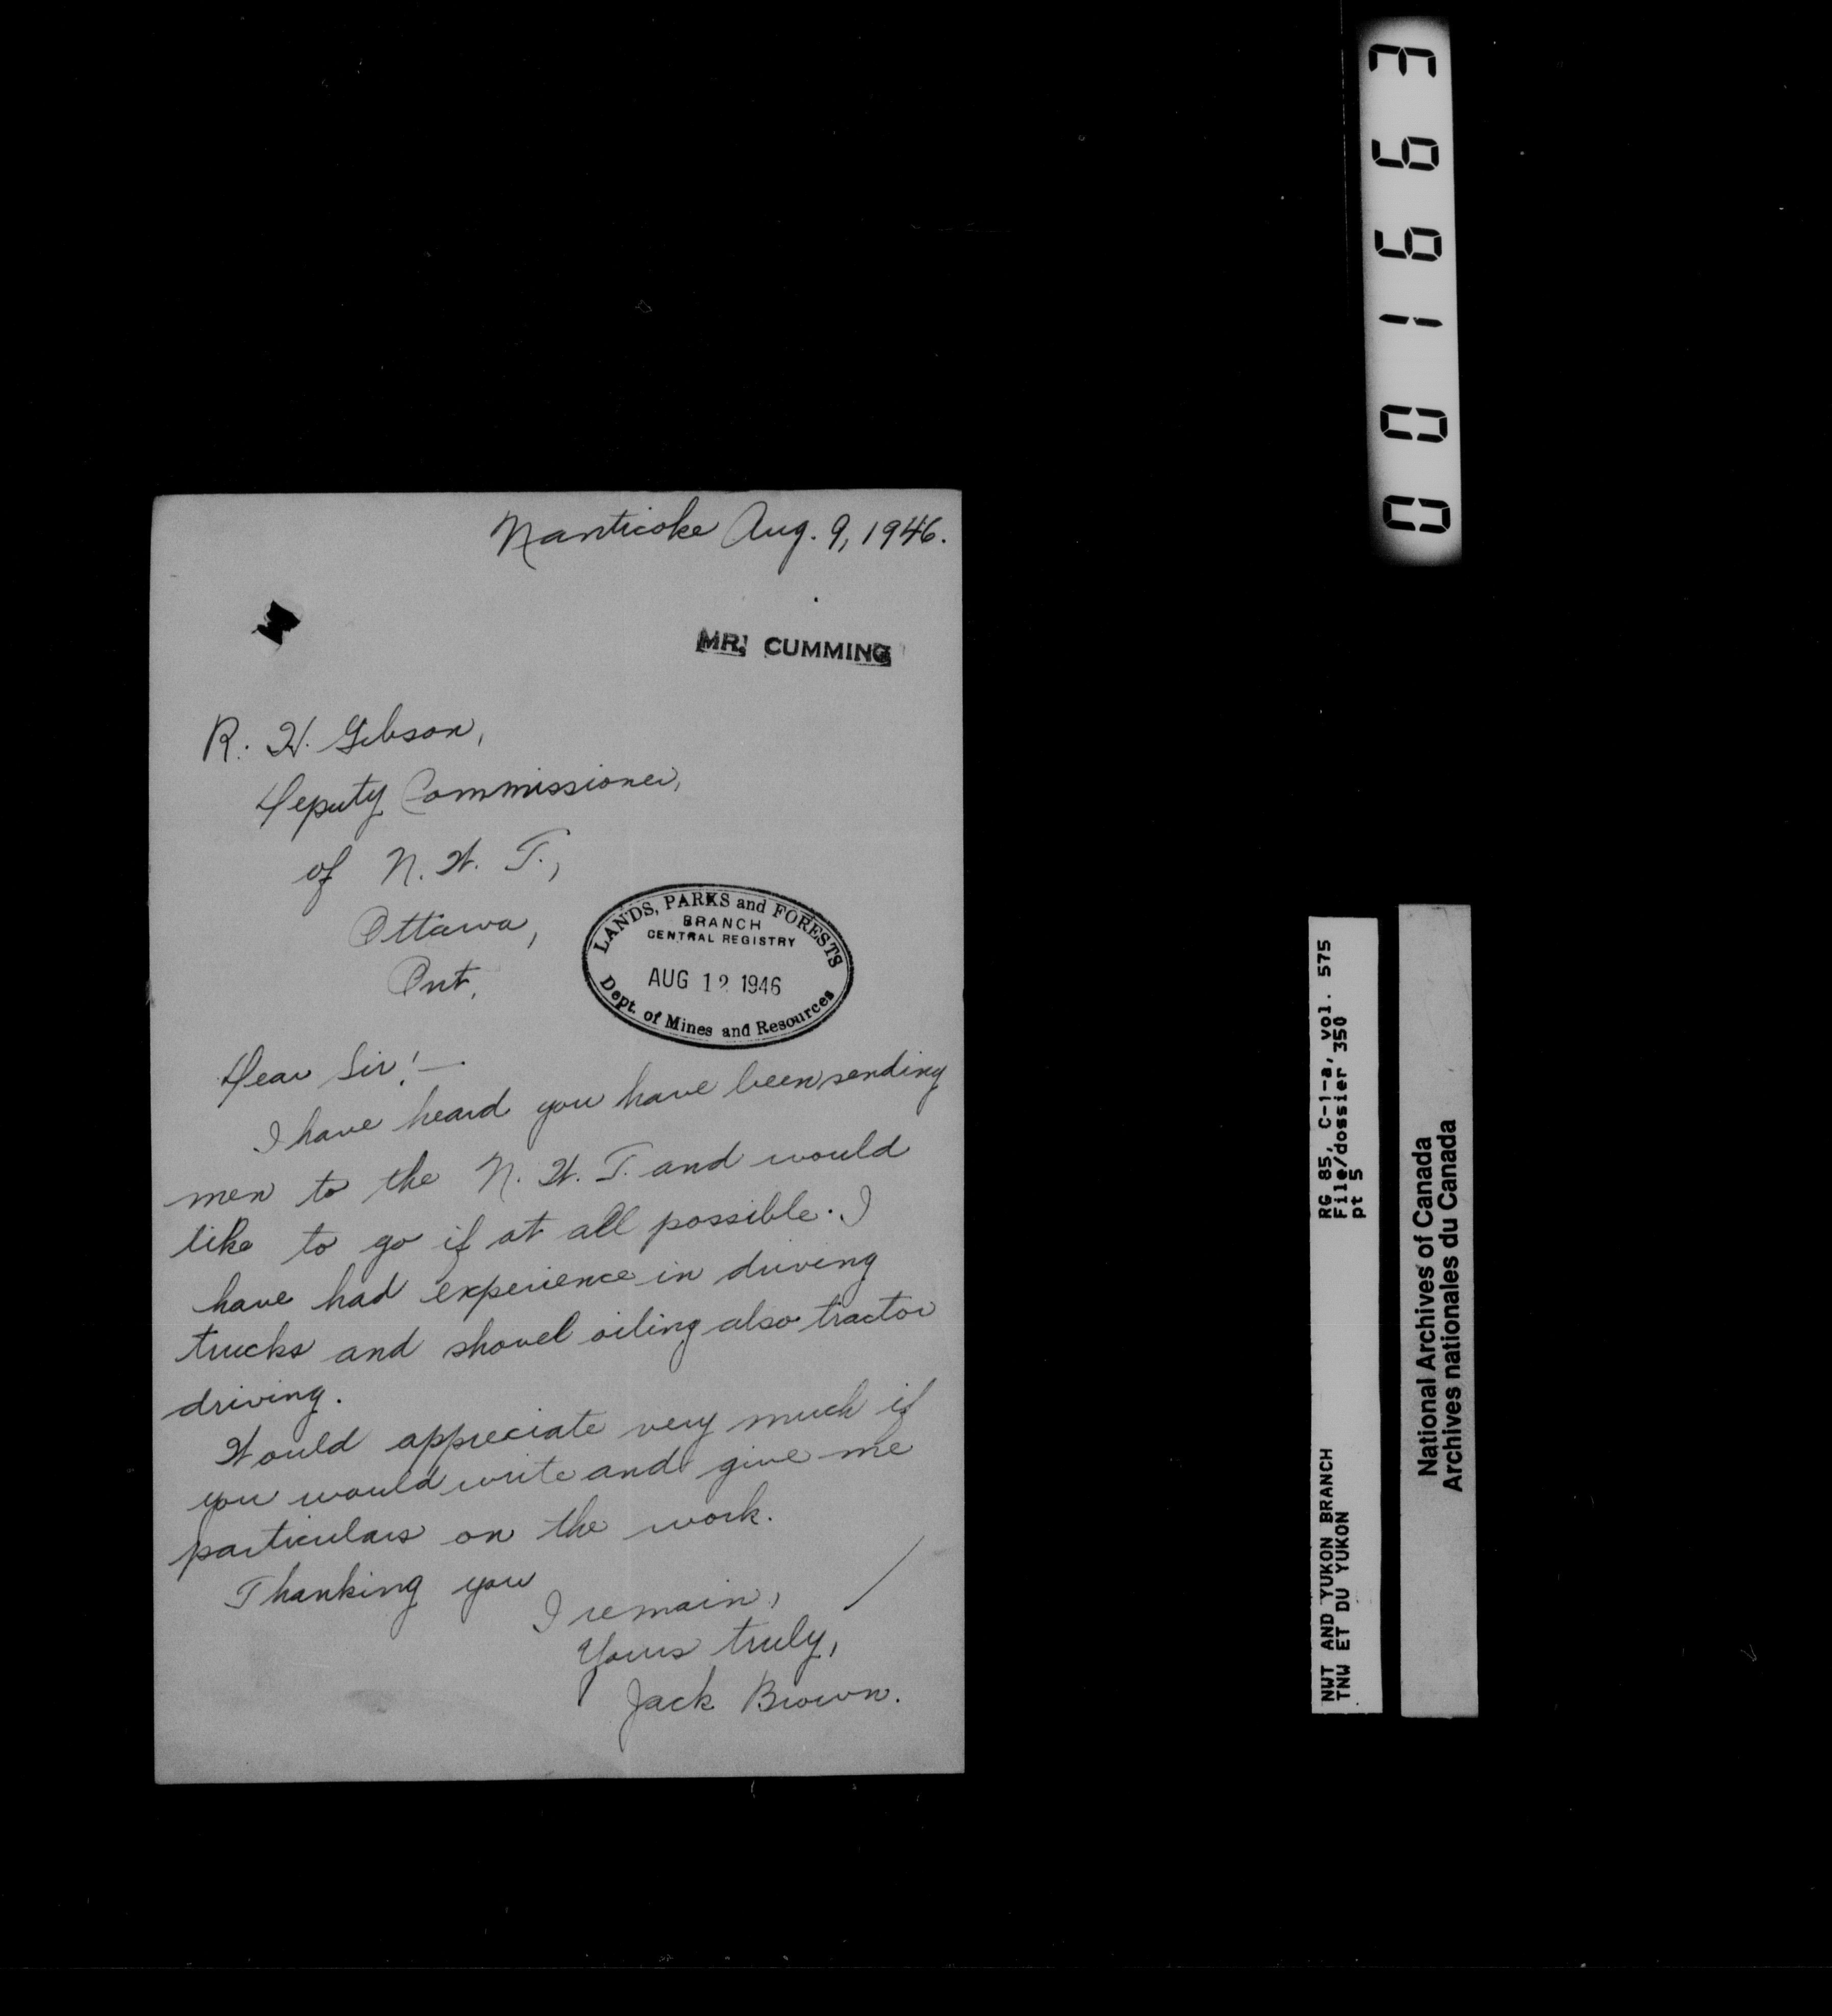 Nanticoke Aug. 9, 1946.
MR. CUMMING
R. H. Gibson,
Deputy Commissioner,
of N. W. T.,
Ottawa,
Ont.
LANDS, PARKS and FORESTS
BRANCH
CENTRAL REGISTRY
AUG 12 1946
Dept. of Mines and Resources
Dear Sir!—
I have heard you have been sending
men to the N. W. T. and would
like to go if at all possible. I
have had experience in driving
trucks and shovel oiling also tractor
driving.
Would appreciate very much if
you would write and give me
particulars on the work.
Thanking you
I remain,
Yours truly,
Jack Brown.
001663
NWT AND YUKON BRANCH RG 85, C-1-a, vol. 575
TNW ET DU YUKON File/dossier 350
pt 5
National Archives of Canada
Archives nationales du Canada